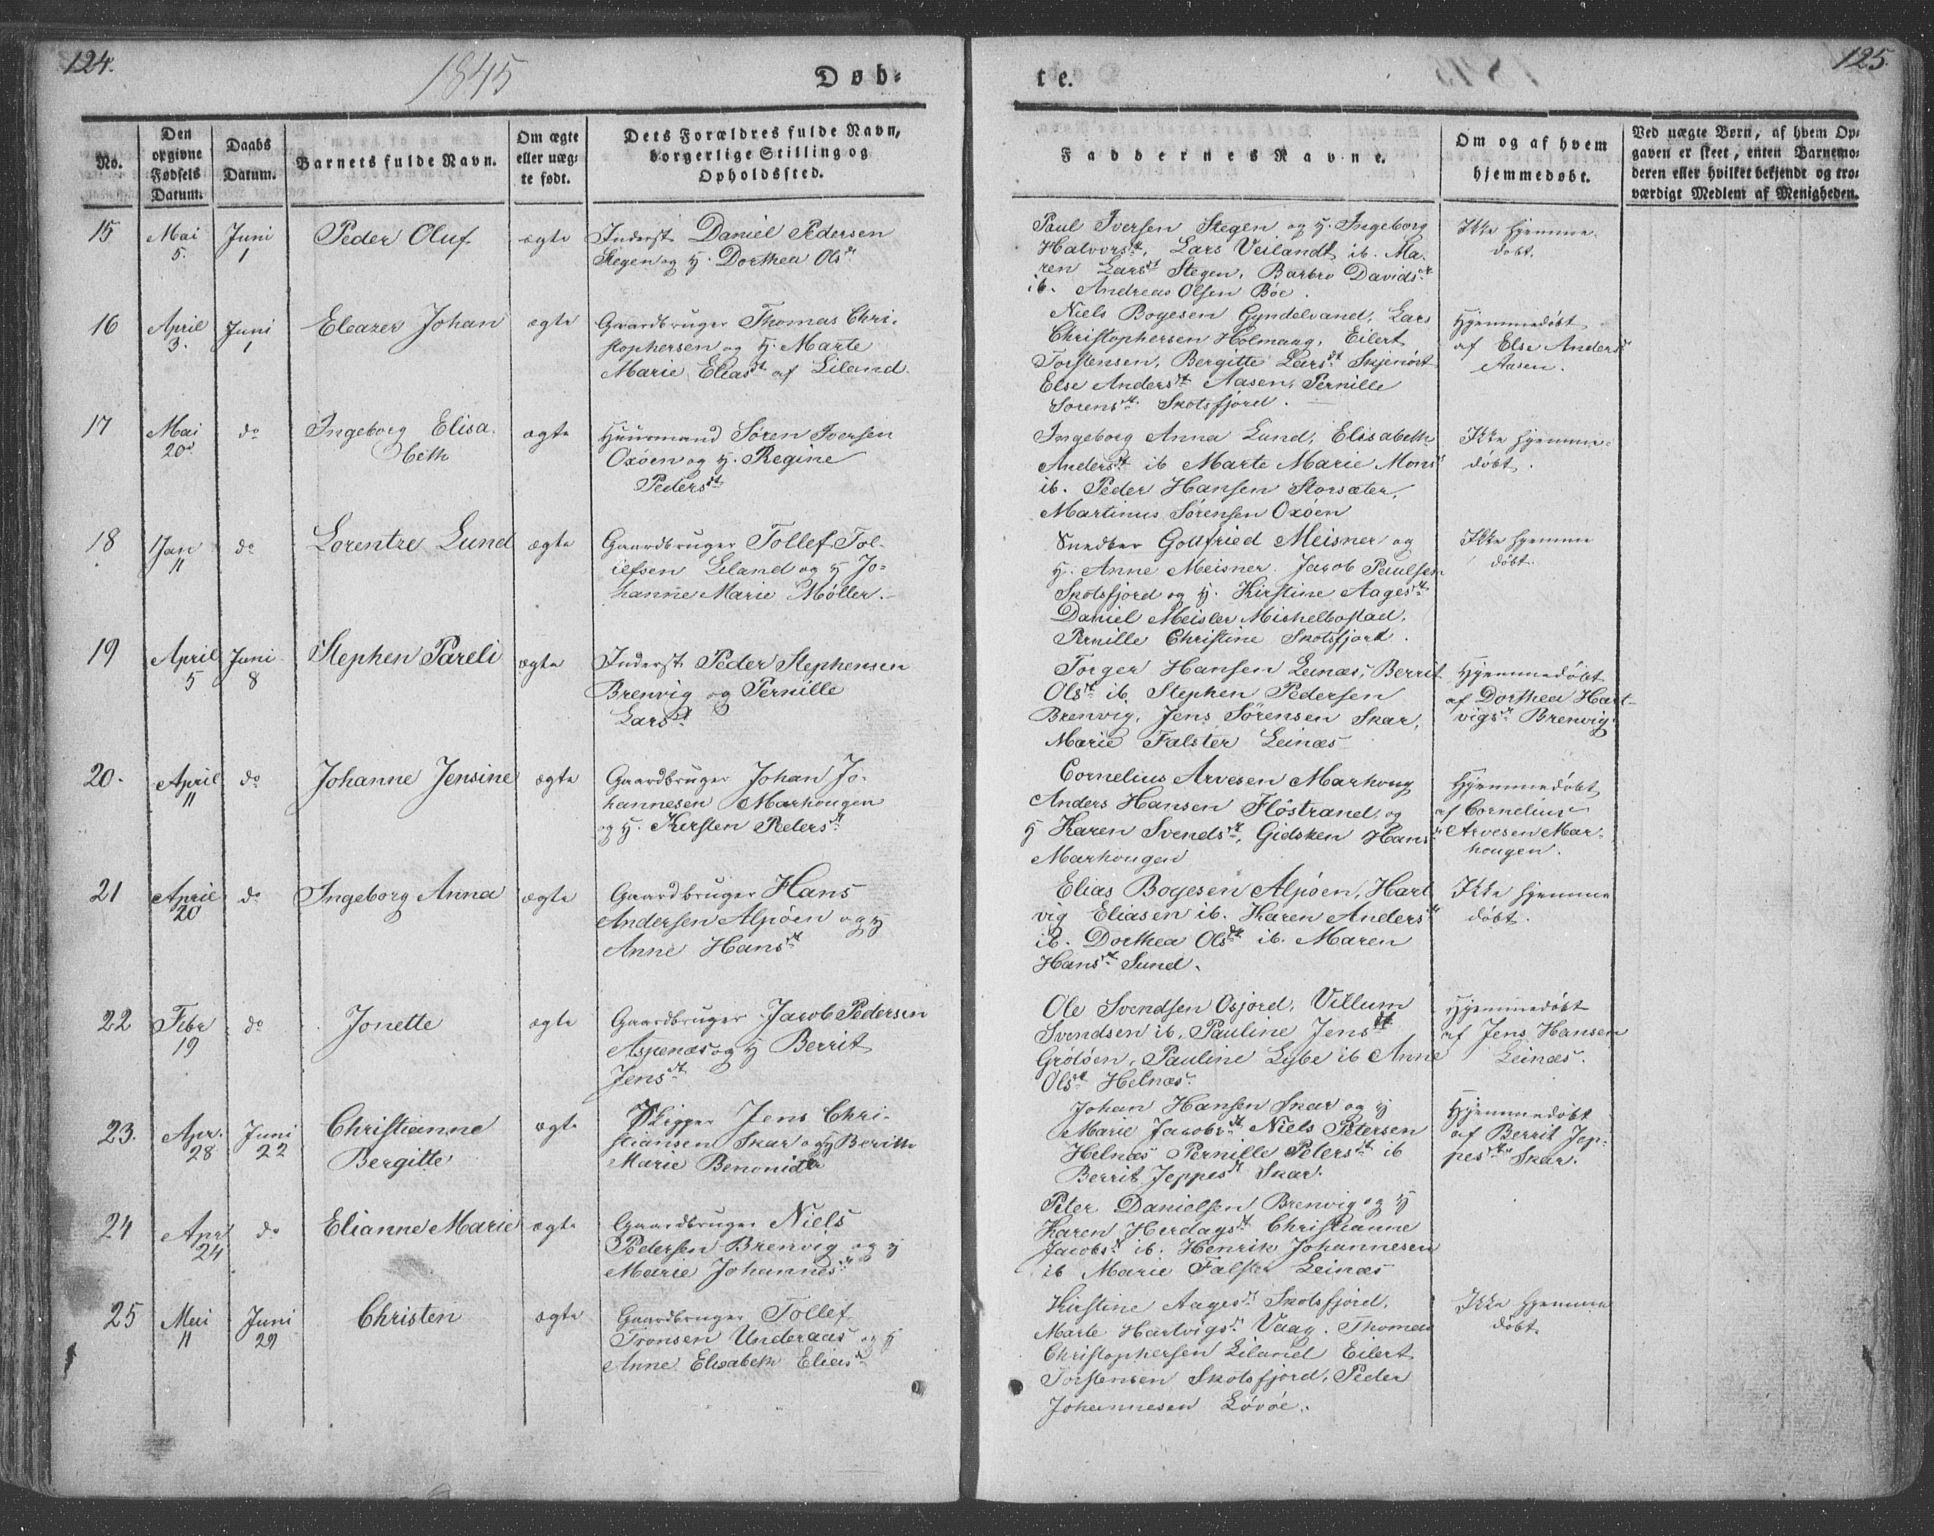 124.
1845
Døb-
te.
125.
No.
Den
opgivne
Fødsels
Datum.
Daabs
Datum.
Barnets fulde Navn.
Om ægte
eller uæg-
te født.
Dets Forældres fulde Navn,
borgerlige Stilling og
Opholdssted.
Faddernes Navne.
Om og af hvem
hjemmedøbt.
Ved uægte Børn, af hvem Op-
gaven er skeet, enten Barnemo-
deren eller hvilket bekjendt og tro-
værdigt Medlem af Menigheden.
15
Mai
5.
Juni
1
Peder Oluf
ægte
Inderst Daniel Pedersen
Stegen og H. Dorthea Olsdt
Paul Iversen Stegen og H. Ingeborg
Halvorsdt, Lars Veilandt ib. Ma-
ren Larsdt Stegen, Barbro Davidsdt
ib. Andreas Olsen Böe.
Ikke hjemme-
døbt.
16
April
3.
Juni
1
Eleazer Johan
ægte
Gaardbruger Thomas Chri-
stophersen og H. Marte
Marie Eliasdt af Liland.
Niels Bogesen Gyndelvand, Lars
Christophersen Holmaag, Eilert
Torstensen, Bergitte Larsdt Skjenöst
Else Andersdt Aasen, Pernille
Sorensdt. Skotsfjord.
Hjemmedøbt
af Else Anders
Aasen.
17
Mai
20
do
Ingeborg Elisa-
beth
ægte
Huusmand Sören Iversen
Oxöen og H. Regine
Pedersdt
Ingeborg Anna Lund, Elisabeth
Andersdt ib Marte Marie Mons
ib. Peder Hansen Storsæter,
Martinus Sörensen Oxöen
Ikke hjemme-
døbt.
18
Jan
11
do
Lorentze Lund
ægte
Gaardbruger Tollef Tol-
lefsen Liland og H Jo-
hanne Marie Møller.
Snedker Gottfried Meisner og
H. Anne Meisner. Jacob Paulsen
Skotsfjord og H. Kirstine Aagesdt
Daniel Meisler Michelbostad,
Pernille Christine Skotsfjord.
Ikke hjemme
døbt.
19
April
5
Juni
8
Stephen Pareli
ægte
Inderst Peder Stephensen
Brenvig og Pernille
Larsdt
Torger Hansen Leinæs, Berrit
Olsdt ib, Stephen Pedersen
Brenvig, Jens Sörensen Skar,
Marie Falster Leinæs
Hjemmedøbt
af Dorthea Hart-
vigsdt Brenvig
20.
April
11
do
Johanne Jensine
ægte
Gaardbruger Johan Jo-
hannesen Marhougen
og H. Kirsten Pedersdt
Cornelius Arvesen Marhoug
Anders Hansen Flöstrand og
H Karen Svendsdt, Gidsken Hans
Marhougen
Hjemmedøbt
af Cornelius
Arvesen Mar-
hougen.
21
April
20
do
Ingeborg Anna
ægte
Gaardbruger Hans
Andersen Alpöen og H
Anne Hansdt
Elias Bogesen Alpöen, Hart
vig Eliasen ib. Karen Andersdt
ib. Dorthea Olsdt ib. Maren
Hansdt Sund.
Ikke hjemme
døbt.
22
Febr
19
do
Jonette
ægte
Gaardbruger Jacob Pedersen
Aspenæs og H Berrit
Jensdt
Ole Svendsen Osjord, Villum
Svendsen ib, Pauline Jensdt
Grötöen, Pauline Lybe ib Anne
Olsdt Helnæs
Hjemmedøbt
af Jens Hansen
Leinæs.
23.
Apr.
28
Juni
22
Christianne
Bergitte
ægte
Jens Chri-
stiansen Skar og H Berith
Marie Benonidt
Johan Hansen Skar og H
Marie Jacobsdt Niels Petersen
Helnæs Pernille Petersdt ib
Berrit Jeppesdt Skar.
Hjemmedøbt
af Berrit Jep-
pesdt Skar.
24
Apr
24
do
Elianne Marie
ægte
Gaardbruger Niels
Pedersen Brenvig og H
Marie Johannesdt
Peter Danielsen Brenvig og H
Karen Herdagsdt Christianne
Jacobsdt ib. Henrik Johannesen
ib Marie Falster Leinæs
25
Mai
11
Juni
29
Christen
ægte
Gaardbruger Tollef
Tronsen Underaas og H
Anne Elisabeth Eliasdt
Kirstine Aagesdt Skotsfjord,
Marte Hartvigsdt Vaag. Thomas
Christophersen Liland Eilert
Torstensen Skotsfjord, Peder
Johannesen Lövöe.
Ikke hjemme
døbt.